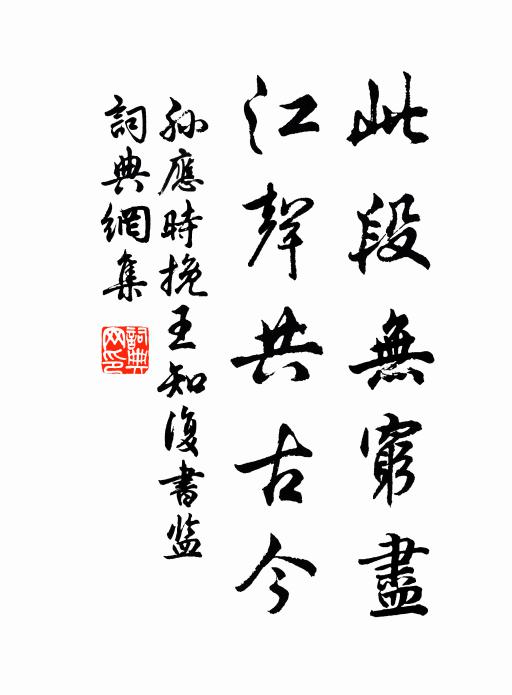 此段無窮盡
江聲共古今
孫應時挽王知復書监
詞典網集
詞典網印